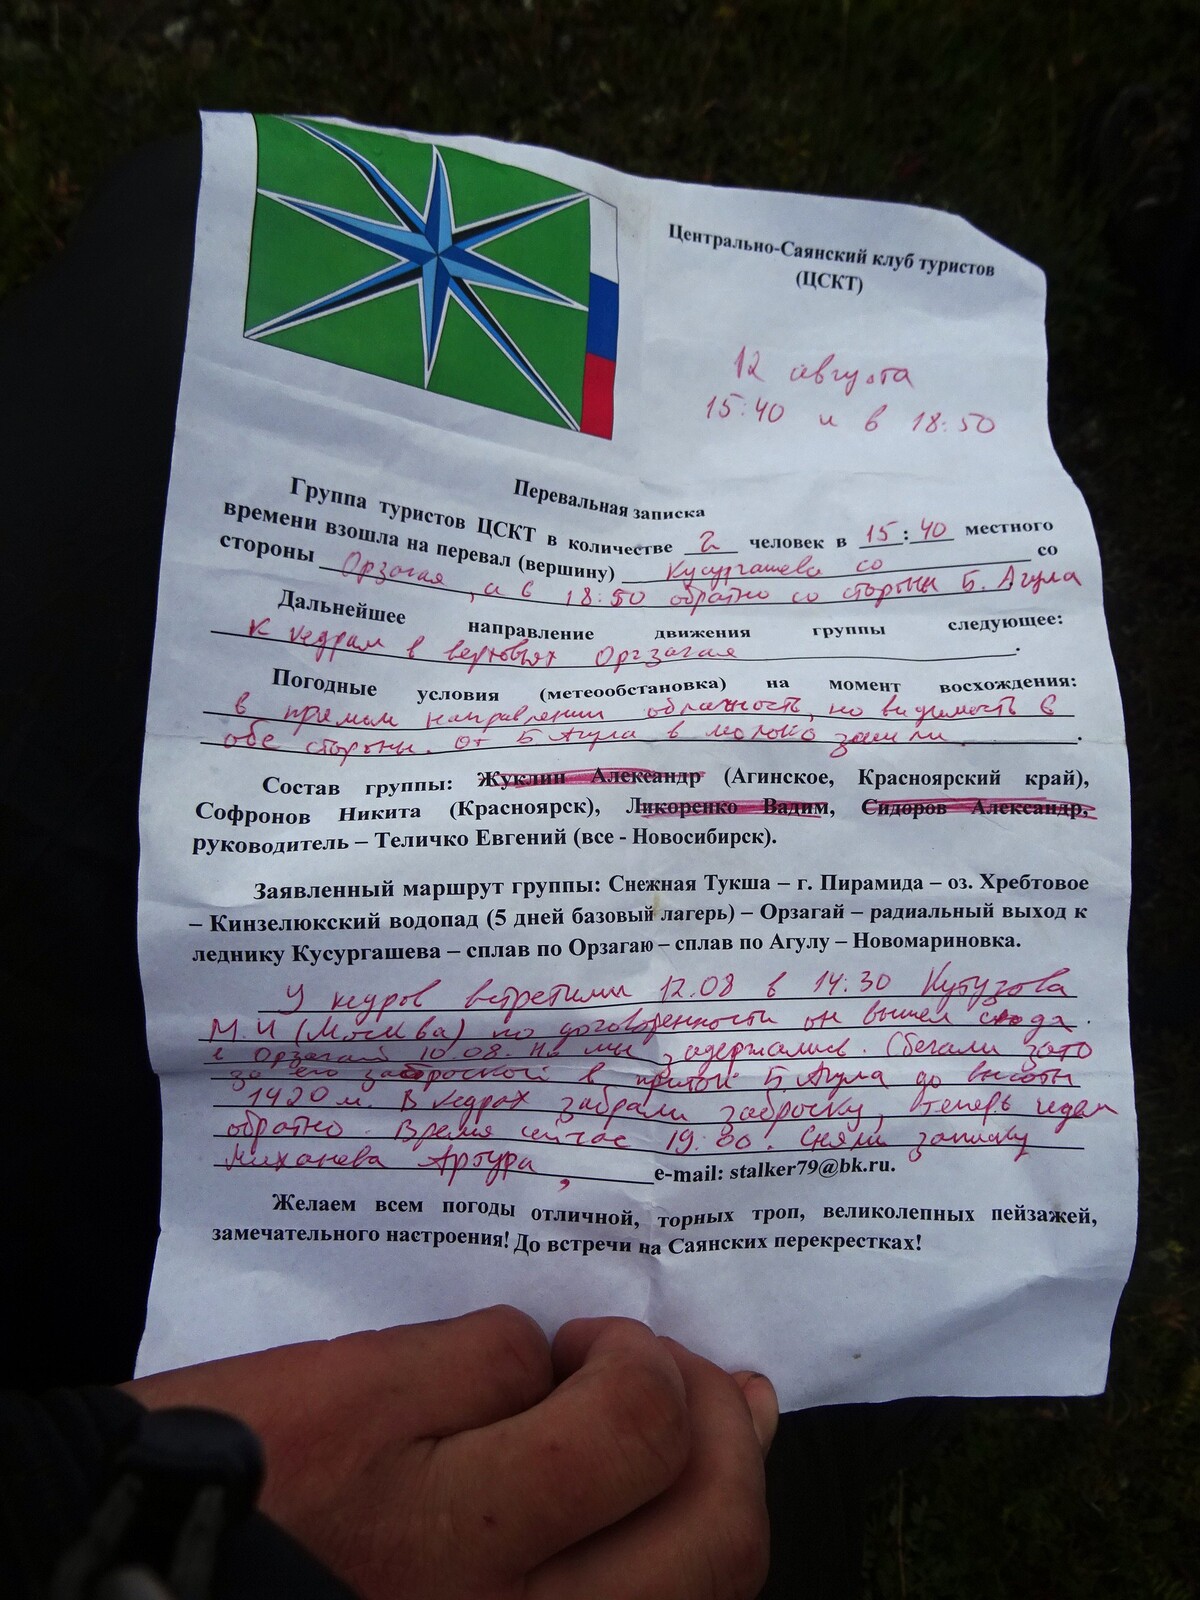 Центрально-Саянский клуб туристов
(ЦСКТ)
12 августа
15:40 и в 18:50
Перевальная записка
Группа туристов ЦСКТ в количестве 2 человек в 15:40 местного
времени взошла на перевал (вершину) Кусургашева со со
стороны Орзагая, а в 18:50 обратно со стороны Б. Агула
Дальнейшее направление движения группы следующее:
к кедрам в верховьях Орзагая.
Погодные условия (метеообстановка) на момент восхождения:
в прямом направлении облачность, но видимость в
обе стороны. От Б Агула в молоко зашли.
Состав группы: Жуклин Александр (Агинское, Красноярский край),
Софронов Никита (Красноярск), Ликоренко Вадим, Сидоров Александр,
руководитель – Теличко Евгений (все - Новосибирск).
Заявленный маршрут группы: Снежная Тукша – г. Пирамида – оз. Хребтовое
– Кинзелюкский водопад (5 дней базовый лагерь) – Орзагай – радиальный выход к
леднику Кусургашева – сплав по Орзагаю – сплав по Агулу – Новомариновка.
У кедров встретили 12.08 в 14:30 Кутузова
М.И (Москва) по договоренности он вышел сюда
в Орзагай 10.08. Но мы задержались. (бегали зато
за его заброской в приток Б Агула до высоты
1420 м. В кедрах забрали заброску, теперь идем
обратно. Время сейчас 19:00. Сняли записку
Михалева Артура, e-mail: stalker79@bk.ru.
Желаем всем погоды отличной, торных троп, великолепных пейзажей,
замечательного настроения! До встречи на Саянских перекрестках!